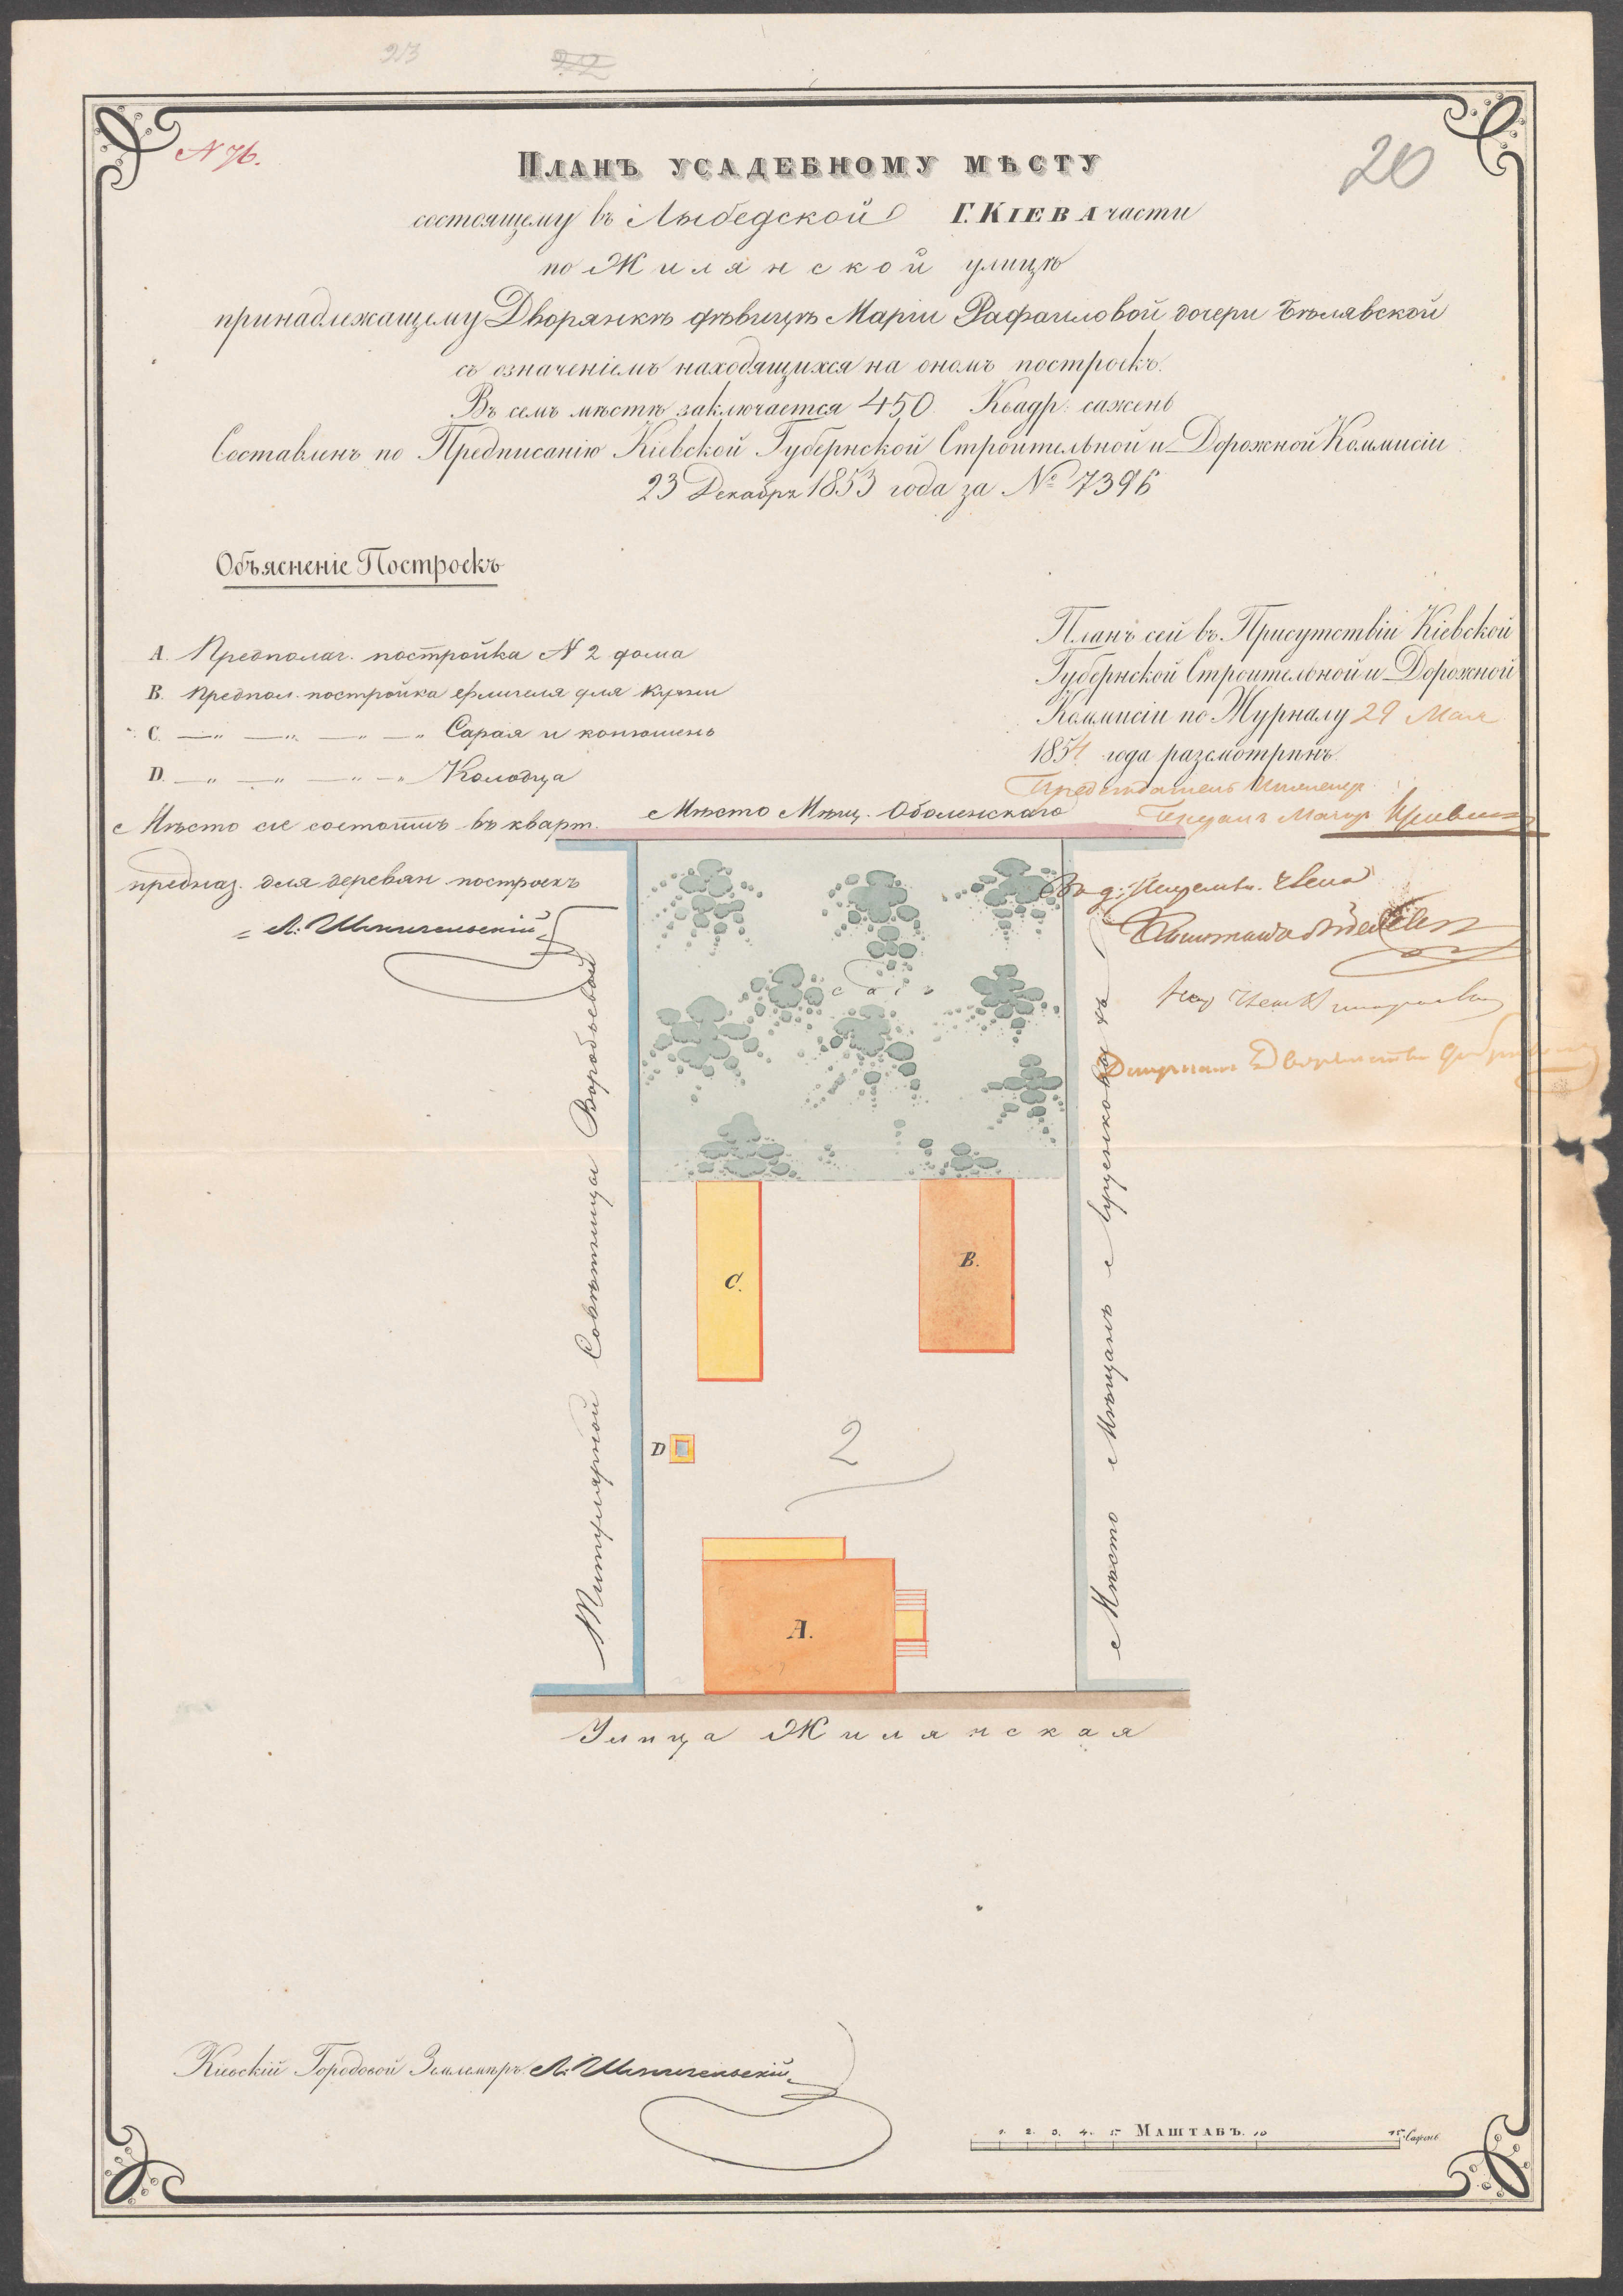 23
22
N 76.
20
Планъ усадебному мѣсту
состоящему въ Лыбедской Г. Кіева части
по Жилянской улицѣ
принадлежащему Дворянкѣ дѣвицѣ Маріи Рафаиловой дочери Бѣлявской
съ означеніемъ находящихся на ономъ построекъ.
Въ семъ мѣстѣ заключается 450 Квадр: сажень
Составленъ по Предписанію Кіевской Губернской Строительной и Дорожной Коммисіи
23 Декабря 1853 года за № 7396
Объясненіе Построекъ
A. Предполаг. постройка N 2 дома
B. Предпол. постройка флигеля для кухни
C. —„ —„ —„ —„ Сарая и конюшень
D. —„ —„ —„ —„ Колодца
Мѣсто сіе состоитъ въ кварт.
предназ. для деревян построекъ
Планъ сей въ Присутствіи Кіевской
Губернской Строительной и Дорожной
Коммисіи по Журналу 29 Мая
1854 года разсмотрѣнъ.
Предсѣдатель Инженер
Генерал Маіор
Мѣсто Мѣщ. Оболенскаго
садъ
Титулярной Совѣтницы Воробьевой
Мѣсто Мѣщанъ
C.
B.
D
2
A.
Улица Жилянская
Кіевскій Городовой Землемѣръ
1. 2. 3. 4. 5 Маштабъ. 10 15 Сажень